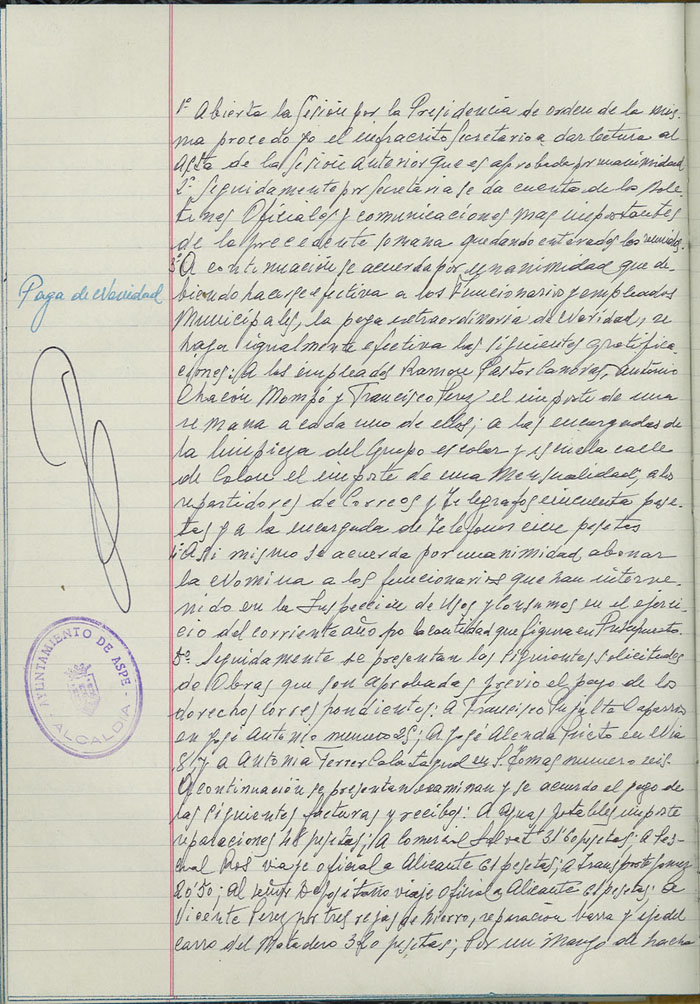 1º Abierta la Sesión por la Presidencia de orden de la mis-
ma procedo yo el infracrito Secretario a dar lectura al
Acta de la Sesión anterior que es aprobada por unanimidad
2º Seguidamente por Secretaria se da cuenta de los Bole-
tines Oficiales y comunicaciones mas importantes
de la precedente semana quedando enterados los reunidos.
3º A continuación se acuerda por unanimidad que de-
Paga de Navidad
biendo hacerse efectiva a los Funcionarios y empleados
Municipales, la paga extraordinaria de Navidad, se
haga igualmente efectiva las siguientes gratifica-
ciones: A los empleados Ramon Pastor Cambras, Antonio
Chacon Mompo y Francisco Perez el importe de una
semana a cada uno de ellos; a las encargadas de
la limpieza del Grupo escolar y escuela calle
de Colon el importe de una Mensualidad; a los
repartidores de Correos y Telegrafos cincuenta pese-
tas y a la encargada de Telefonos cien pesetas
4º Asi mismo se acuerda por unanimidad abonar
la Nomina a los funcionarios que han interve-
nido en la Inspeccion de Usos y Consumos en el ejerci-
cio del corriente año por la cantidad que figura en Presupuesto.
AYUNTAMIENTO DE ASPE
- ALCALDIA -
5º Seguidamente se presentan las siguientes solicitudes
de Obras que son aprobadas, previo el pago de los
derechos correspondientes: A Francisco Caparros
en José Antonio numero 25; A José Alenda Prieto en Via
8 y a Antonia Ferrer Calatayud en S. Tomas numero seis.
A continuación se presentan examinan y se acuerda el pago de
las siguientes facturas y recibos: A Aguas Potables importe
reparaciones 48 pesetas; A Comercial Salvat 31'60 pesetas; A Pas-
cual Ros viaje oficial a Alicante 61 pesetas; A Transportes Gomez
20'50; Al señor Depositario viaje Oficial a Alicante 61 pesetas: A
Vicente Perez por tres rejas de hierro, reparacion barra y eje del
carro del Matadero 320 pesetas; Por un Mango de hacha